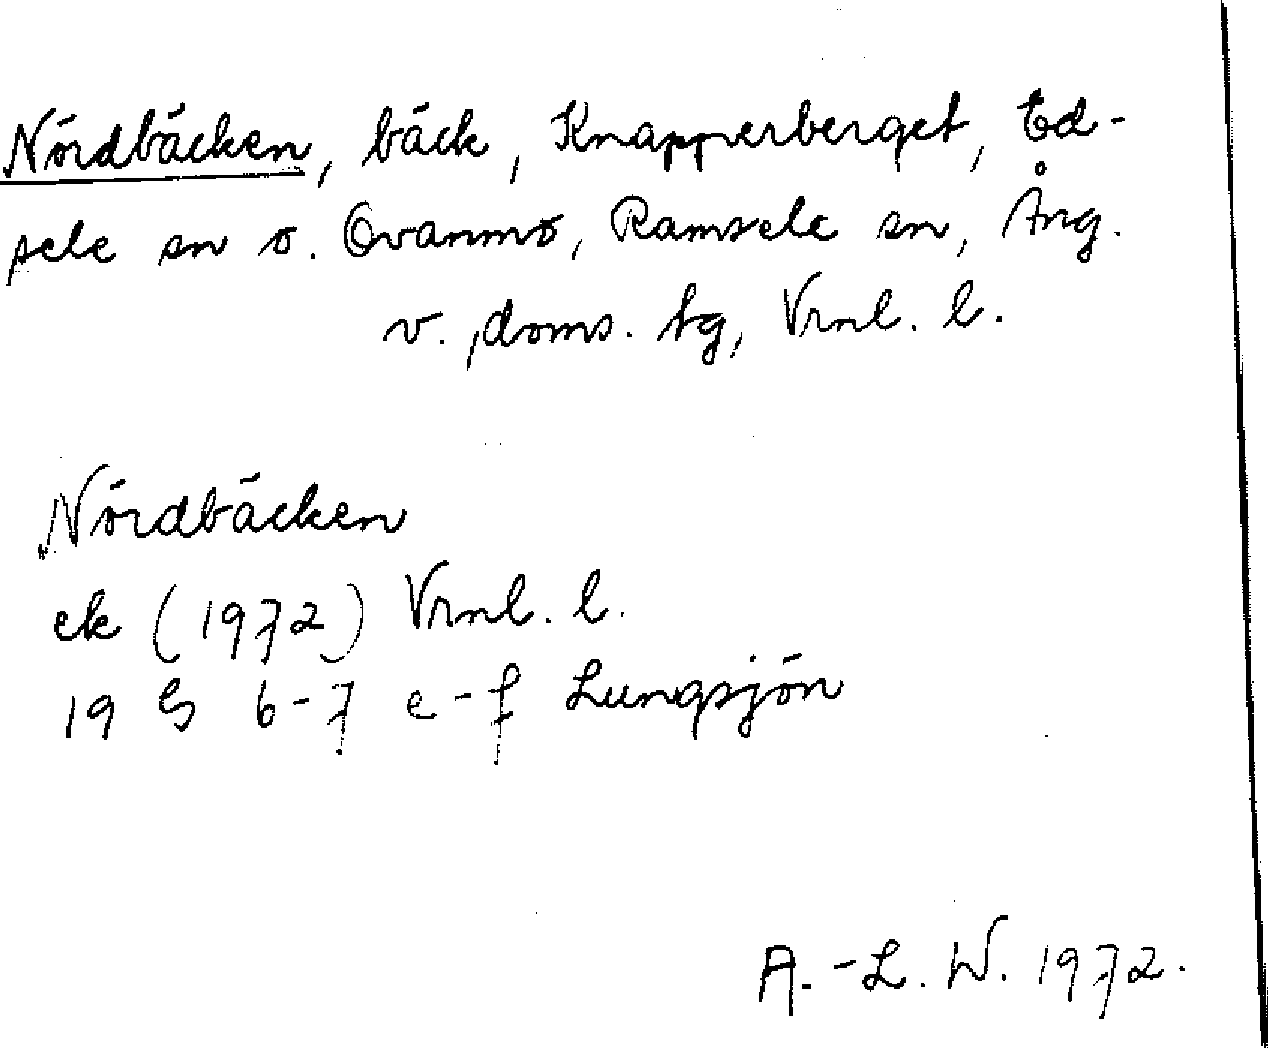 Nördbäcken, bäck, Knapperberget, Ed-
sele sn o. Ovanmo, Ramsele sn, Ång.
v. doms. tg, Vrnl. l.
Nördbäcken
ek (1972) Vrnl. l.
19 G 6-7 e-f Lungsjön
A.-L. W. 1972.